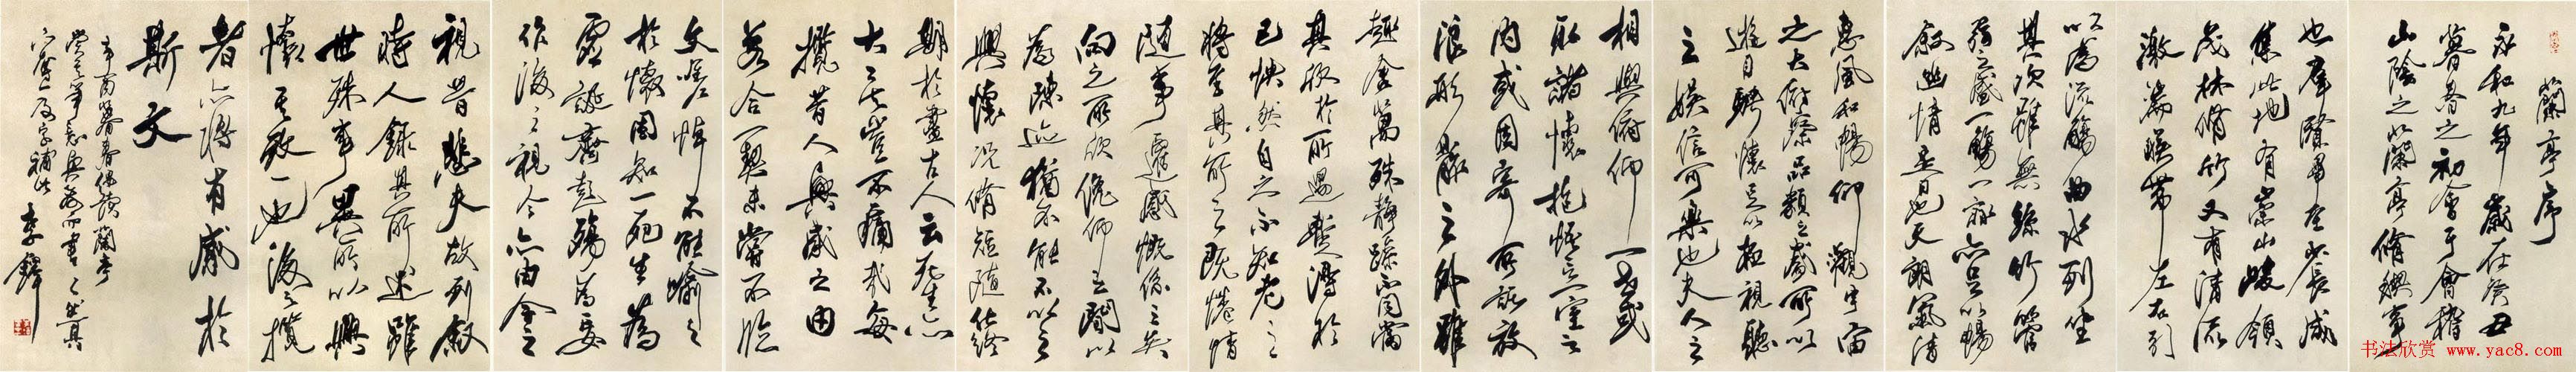 蘭亭序
永和九年歲在癸丑
暮春之初會于會稽
山陰之蘭亭脩禊事
也群賢畢至少長咸
集此地有崇山峻領
茂林脩竹又有清流
激湍暎帶左右引
以為流觴曲水列坐
其次雖無絲竹管
弦之盛一觴一詠亦足以暢
敘幽情是日也天朗氣清
惠風和暢仰觀宇宙
之大俯察品類之盛所以
遊目騁懷足以極視聽
之娛信可樂也夫人之
相與俯仰一世或
取諸懷抱悟言一室之
內或因寄所託放
浪形骸之外雖
趣舍萬殊靜躁不同當
其欣於所遇暫得於
己怏然自足不知老之
將至及其所之既惓情
隨事遷感慨係之矣
向之所欣俛仰之間以
為陳迹猶不能不以之
興懷況脩短隨化終
期於盡古人云死生亦
大矣豈不痛哉每
攬昔人興感之由
若合一契未嘗不臨
文嗟悼不能喻之
於懷固知一死生為
虛誕齊彭殤為妄
作後之視今亦由今之
視昔悲夫故列敘
時人錄其所述雖
世殊事異所以興
懷其致一也後之攬
者亦將有感於
斯文
李鐸
书法欣赏 www.yac8.com